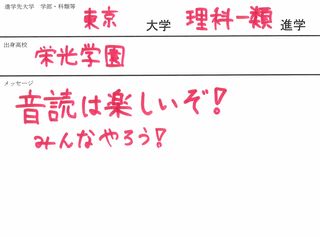 進学先大学 学部・科類等
東京 大学 理科一類 進学
出身高校
栄光学園
メッセージ
音読は楽しいぞ!
みんなやろう!